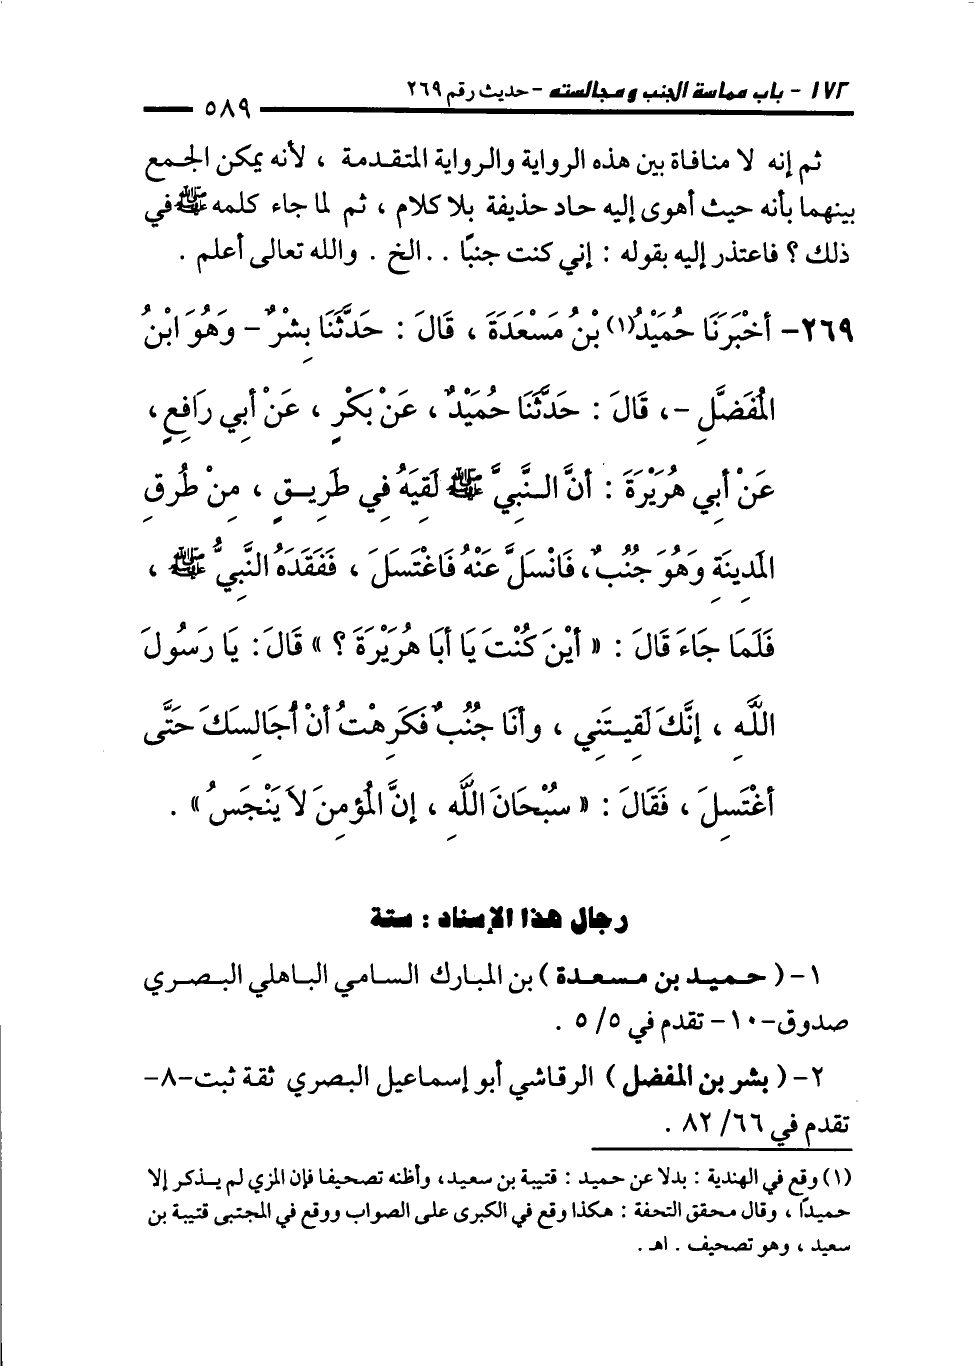 ١٧٣ - باب مماسة الجنب ومجالسته - حديث رقم ٢٦٩
٥٨٩
ثم إنه لا منافاة بين هذه الرواية والرواية المتقدمة ، لأنه يمكن الجمع
بينهما بأنه حيث أهوى إليه حاد حذيفة بلا كلام ، ثم لما جاء كلمه ﷺ في
ذلك ؟ فاعتذر إليه بقوله : إني كنت جنبًا . . الخ . والله تعالى أعلم .
٢٦٩- أَخْبَرَنَا حُمَيْدُ(١) بْنُ مَسْعَدَةَ ، قَالَ : حَدَّثَنَا بِشْرٌ - وَهُوَ ابْنُ
المُفَضَّلِ -، قَالَ : حَدَّثَنَا حُمَيْدٌ ، عَنْ بَكْرٍ ، عَنْ أبِي رَافِعٍ ،
عَنْ أبِي هُرَيْرَةَ : أنَّ النَّبِيَّ ﷺ لَقِيَهُ فِي طَرِيقٍ ، مِنْ طُرُقِ
المَدِينَةِ وَهُوَ جُنُبٌ ، فَانْسَلَّ عَنْهُ فَاغْتَسَلَ ، فَفَقَدَهُ النَّبِيُّ ﷺ ،
فَلَمَا جَاءَ قَالَ : « أيْنَ كُنْتَ يَا أبَا هُرَيْرَةَ ؟ » قَالَ : يَا رَسُولَ
اللَّهِ ، إِنَّكَ لَقِيتَنِي ، وأنَا جُنُبٌ فَكَرِهْتُ أنْ أُجَالِسَكَ حَتَّى
أغْتَسِلَ ، فَقَالَ : « سُبْحَانَ اللَّهِ ، إِنَّ المُؤمِنَ لاَ يَنْجَسُ » .
رجال هذا الإسناد : ستة
١- ( حميد بن مسعدة ) بن المبارك السامي الباهلي البصري
صدوق-١٠- تقدم في ٥/ ٥ .
٢- ( بشر بن المفضل ) الرقاشي أبو إسماعيل البصري ثقة ثبت-٨-
تقدم في ٦٦/ ٨٢ .
(١) وقع في الهندية : بدلا عن حميد : قتيبة بن سعيد، وأظنه تصحيفا فإن المزي لم يذكر إلا
حميدًا ، وقال محقق التحفة : هكذا وقع في الكبرى على الصواب ووقع في المجتبى قتيبة بن
سعيد ، وهو تصحيف . اهـ .